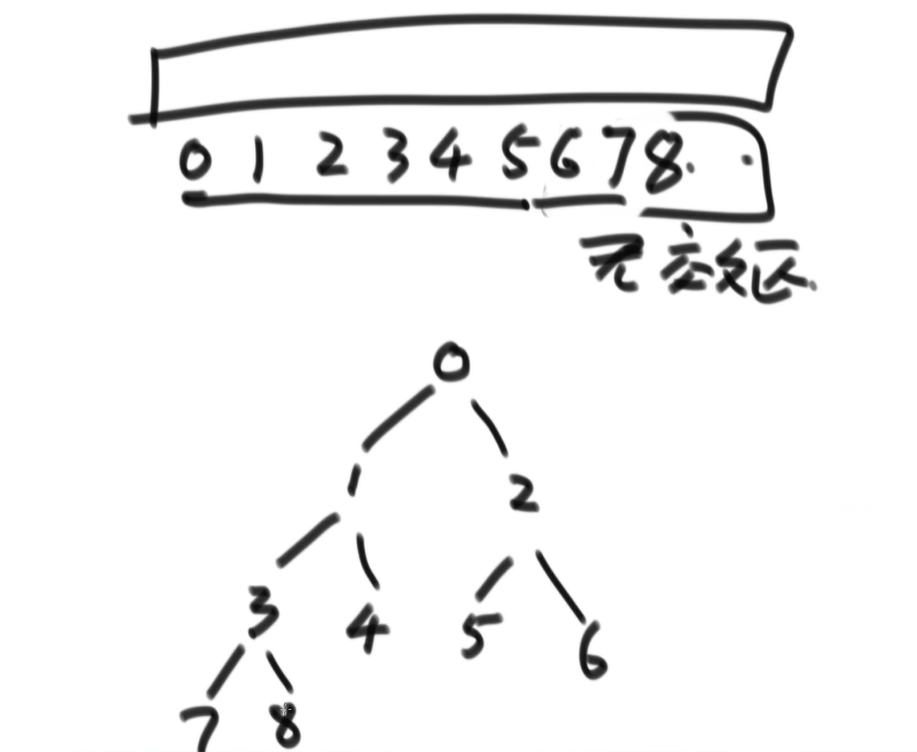 0 1 2 3 4 5 6 7 8 . .
无效区
0
1 2
3 4 5 6
7 8